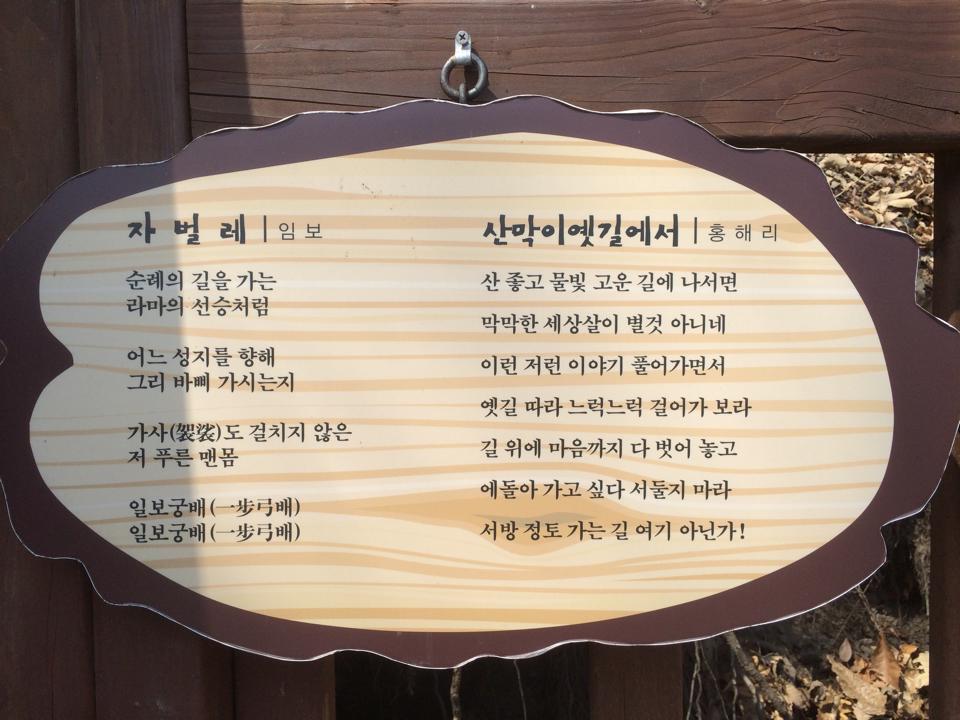 자 벌 레 | 임 보
순례의 길을 가는
라마의 선승처럼
어느 성지를 향해
그리 바삐 가시는지
가사(袈裟)도 걸치지 않은
저 푸른 맨몸
일보궁배(一步弓配)
일보궁배(一步弓配)
산막이옛길에서 | 홍 해 리
산 좋고 물빛 고운 길에 나서면
막막한 세상살이 별것 아니네
이런 저런 이야기 풀어가면서
옛길 따라 느럭느럭 걸어가 보라
길 위에 마음까지 다 벗어 놓고
에돌아 가고 싶다 서둘지 마라
서방 정토 가는 길 여기 아닌가!